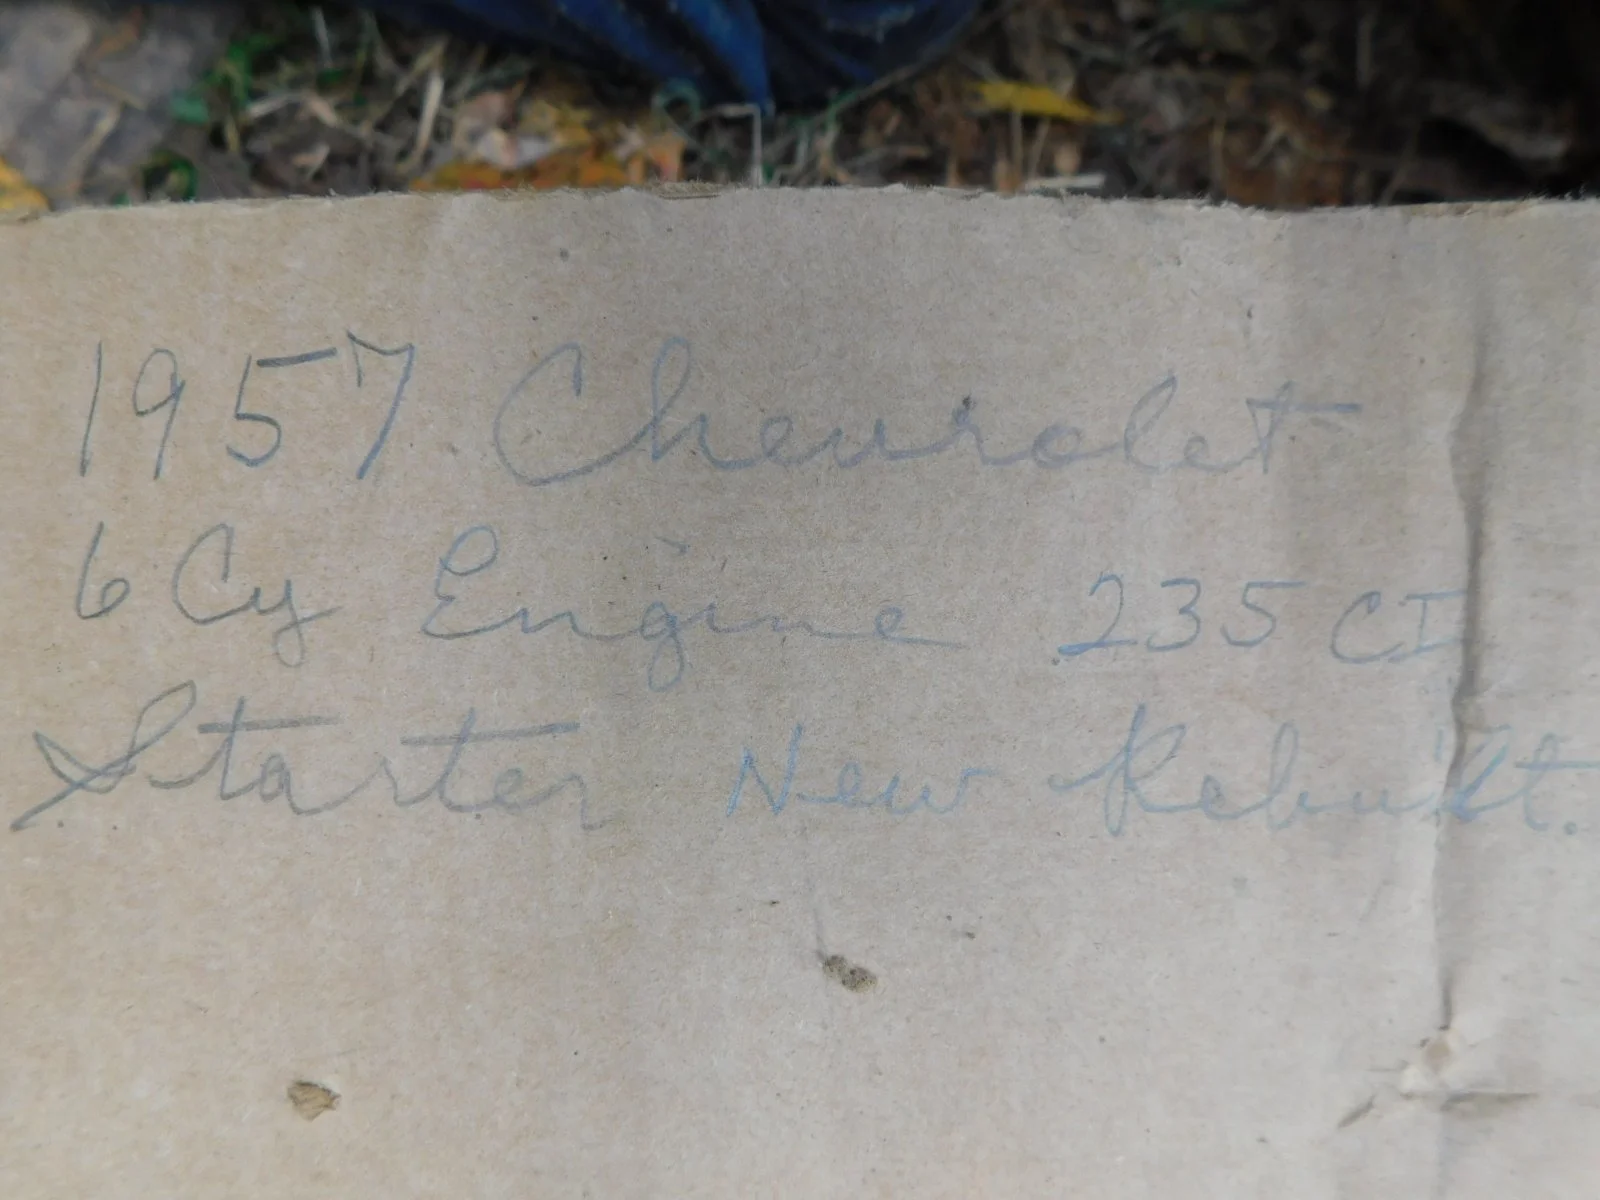 1957 Chevrolet
6 Cy Engine 235 CI
Starter New Rebuilt.